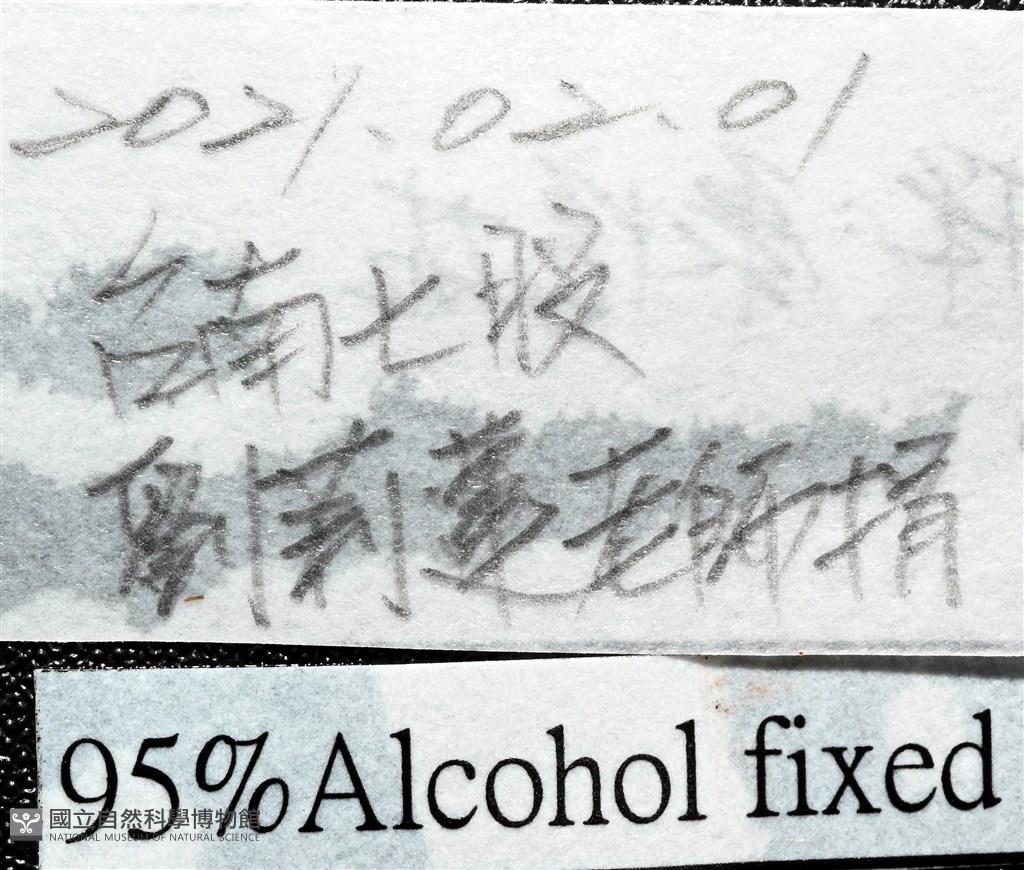 2021.02.01
台南七股
劉莉蓮老師捐
95% Alcohol fixed
國立自然科學博物館
NATIONAL MUSEUM OF NATURAL SCIENCE